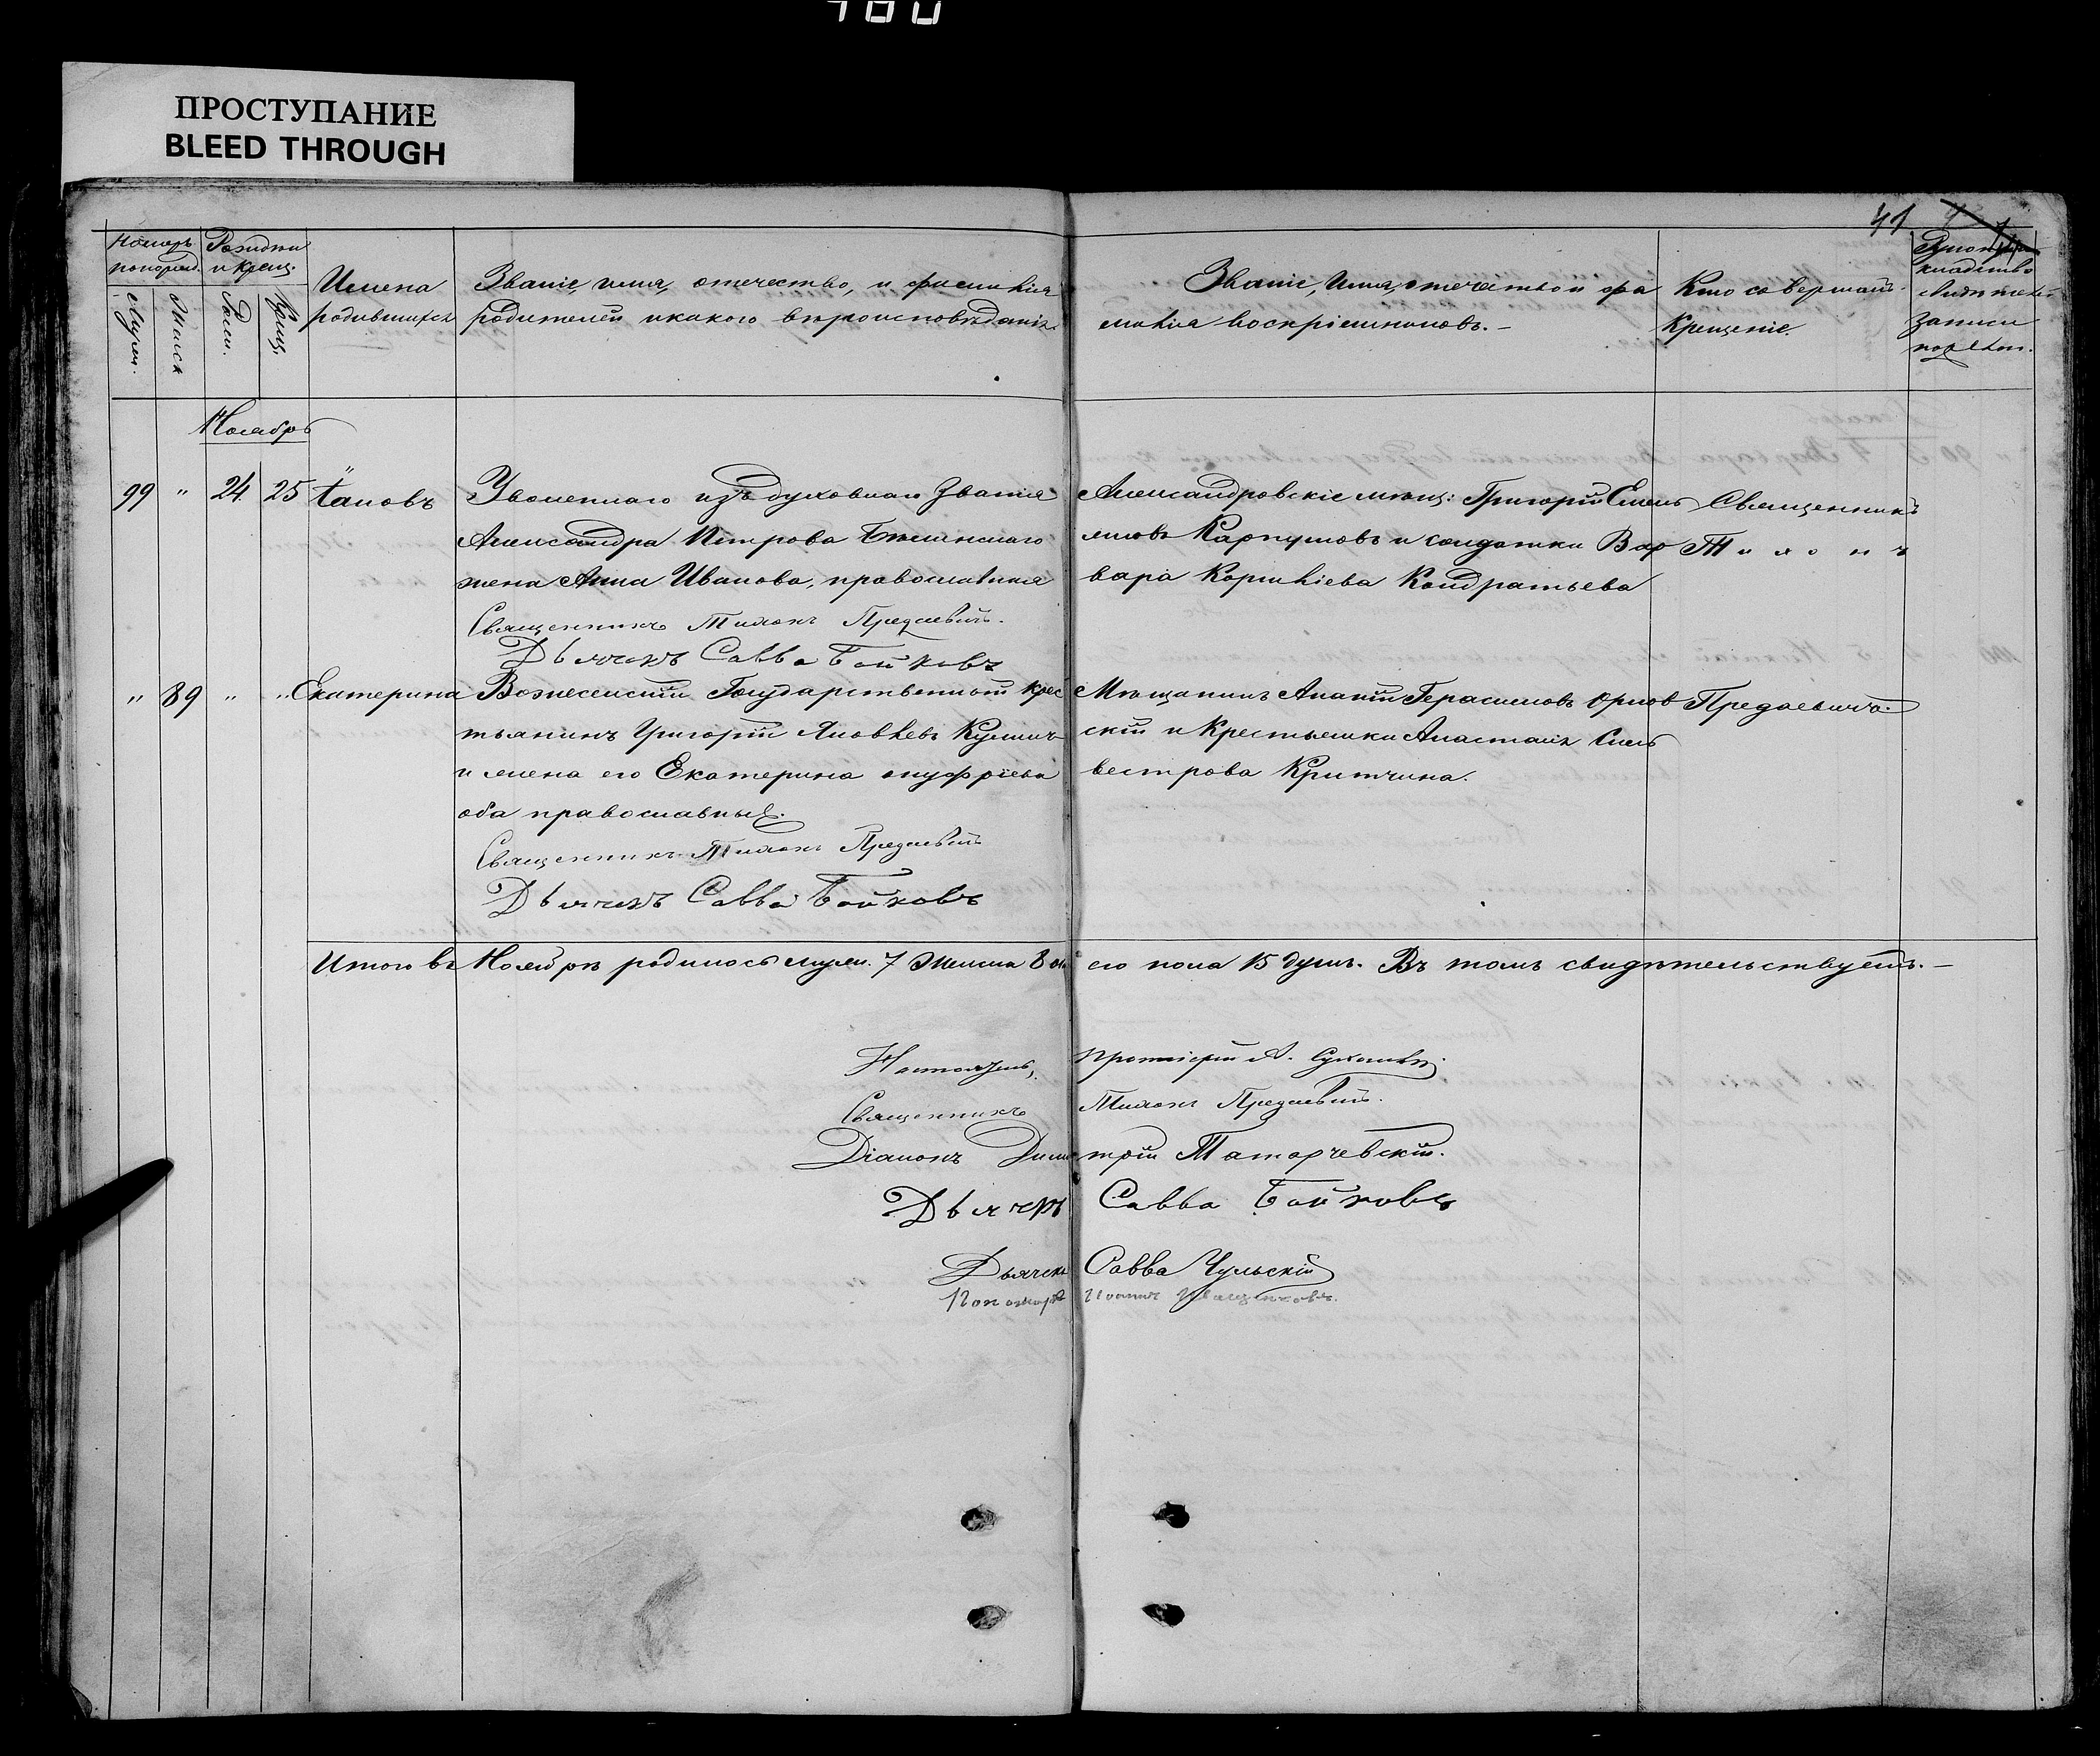 480
ПРОСТУПАНИЕ
BLEED THROUGH
41
Номеръ
Рожднія
и крещ.
Мужск.
Женск
Рожд.
Крещ.
Имена
родившихся
Званіе, имя, отечество, и фамилія
родителей и какого вѣроисповѣданія.
Званіе, Имя, отечество и фа
милія воспріемниковъ. –
Кто совершалъ
Крещеніе.
Рукопри
кладство
свидѣтелей
записи
Ноябрь
99 " 24 25 Іаковъ
Уволеннаго изъ духовнаго Званія
Александра Петрова
жена Анна Иванова, православная
Священникъ Тихонъ Предаевичъ.
Дьячекъ Савва Бойковъ
Александровскіе мѣщ: Григорій Емель
яновъ Карпуновъ и солдатка Вар
вара Корнѣіева Кондратьева
Священникъ
Т и х о н ъ
" 89 " " Екатерина
Вознесенскій Государственный крес
тьянинъ Григорій Яковлевъ
и жена его Екатерина онуфріева
оба православные.
Священникъ Тихонъ Предаевичъ
Дьячекъ Савва Бойковъ
Мѣщанинъ Ананій Герасимовъ Орлов
скій и Крестьянка Анастасія Силь
вестрова Критчина.
Предаевичъ.
Итого въ Ноябрѣ родилось мужеск. 7 Женска 8 обо его пола 15 душъ. Въ томъ свидѣтельствуемъ. –
Настоятель, протоіерей А.
Священникъ Тихонъ Предаевичъ.
Діаконъ Димитрій Татарчевскій.
Дьячекъ Савва Бойковъ
Дьячекъ Савва Чульскій
Пономарь Иоаннъ